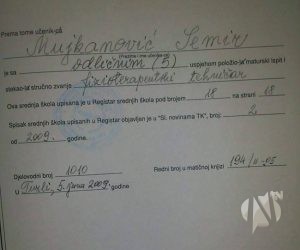 Prema tome učenik-ca
Mujkanović Semir
(Prezime i ime)
je sa odličnim (5) uspjehom položio-la maturski ispit i
stekao-la stručno zvanje fizioterapeutski tehničar
Ova srednja škola upisana je u Registar srednjih škola pod brojem 18 na strani 18
Spisak srednjih škola upisanih u Registar objavljen je u "Sl. novinama TK", broj: 2,
od 2009. godine.
Djelovodni broj 1010
Redni broj u matičnoj knjizi 194/II-05
U Tuzli, 5. juna 2009. godine